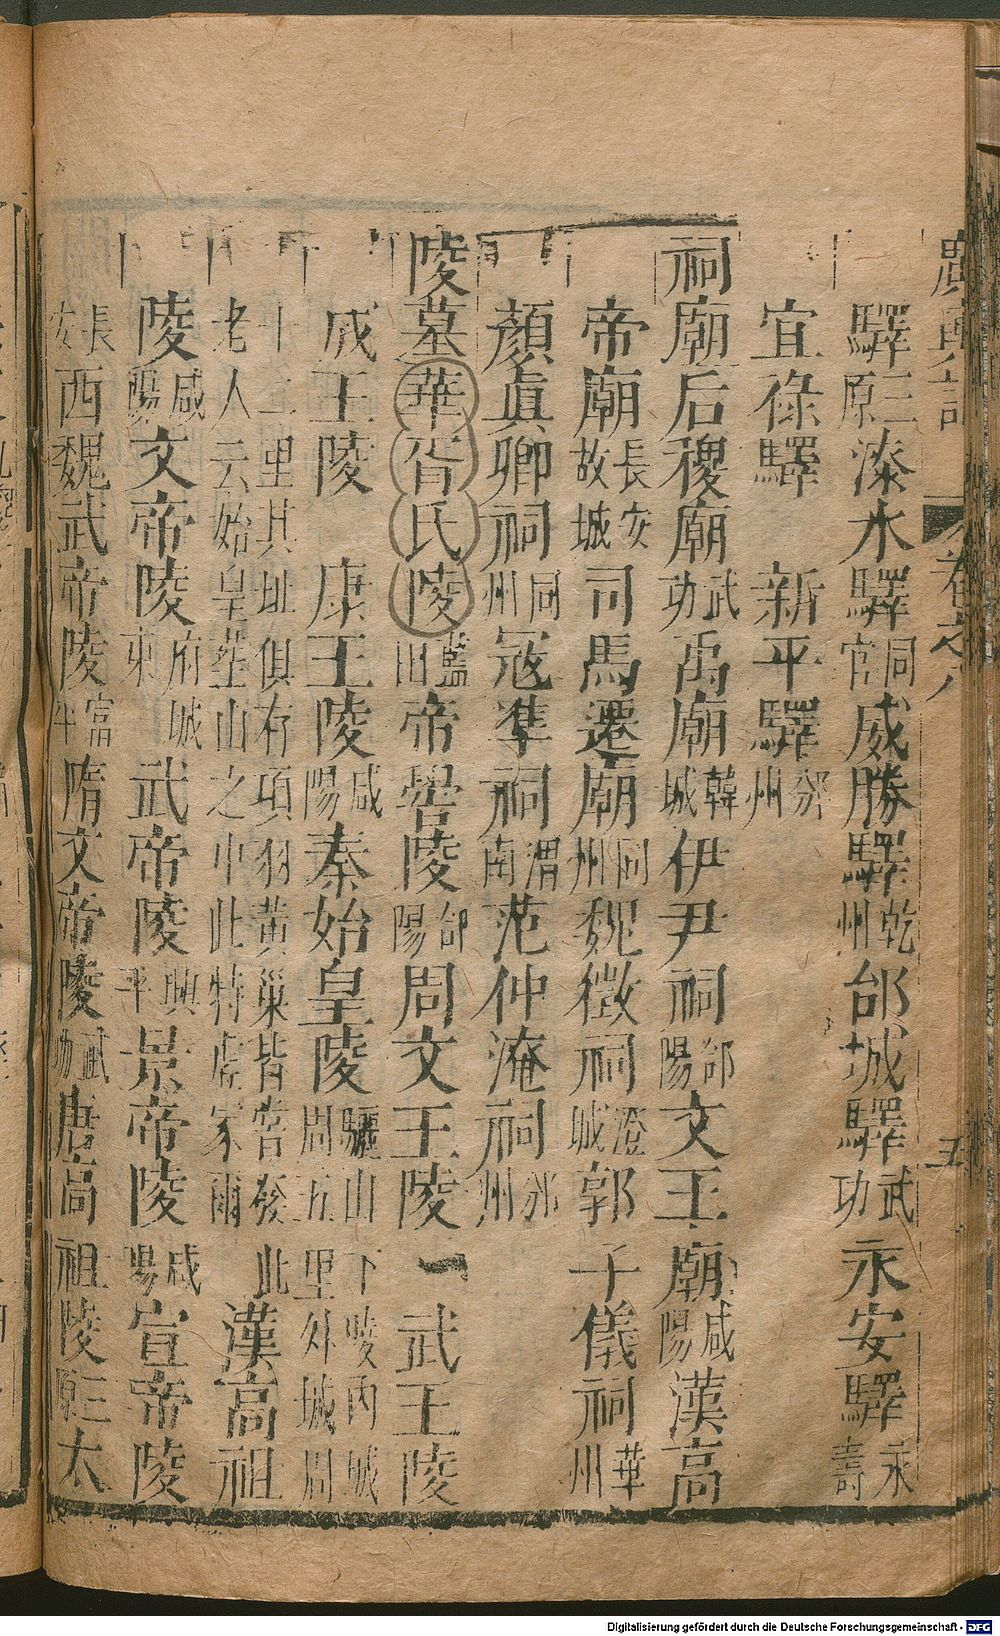 驛三原漆水驛同官威勝驛乾州邰城驛武功永安驛永壽
宜祿驛 新平驛邠州
祠廟后稷廟武功禹廟韓城伊尹祠郃陽文王廟咸陽漢高
帝廟長安故城司馬遷廟同州魏徵祠澄城郭子儀祠華州
顏眞卿祠同州冦準祠渭南范仲淹祠邠州
陵墓華胥氏陵藍田帝嚳陵郃陽周文王陵 武王陵
成王陵 康王陵咸陽秦始皇陵驪山下陵內城周五里外城周
十二里其址俱存項羽黃巢皆嘗發此老人云始皇塟山之中此特虛冢爾漢高祖
陵咸陽文帝陵府城東武帝陵興平景帝陵咸陽宣帝陵
長安西魏武帝陵富平隋文帝陵武功唐高祖陵三原太
卷之八
五
Digitalisierung gefördert durch die Deutsche Forschungsgemeinschaft - DFG